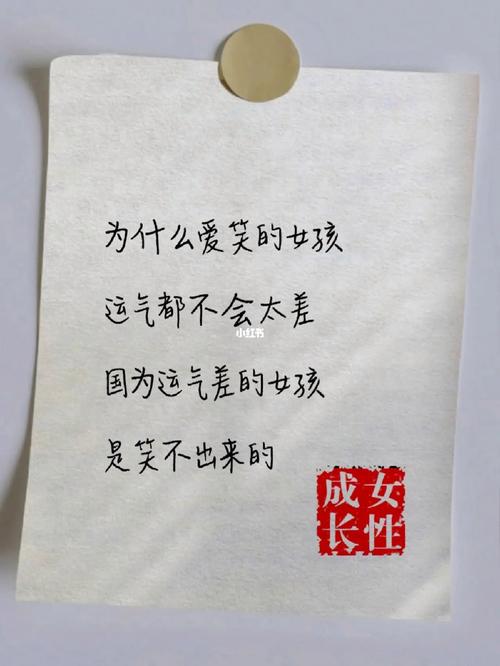 为什么爱笑的女孩
运气都不会太差
小红书
国为运气差的女孩
是笑不出来的
女性
成长